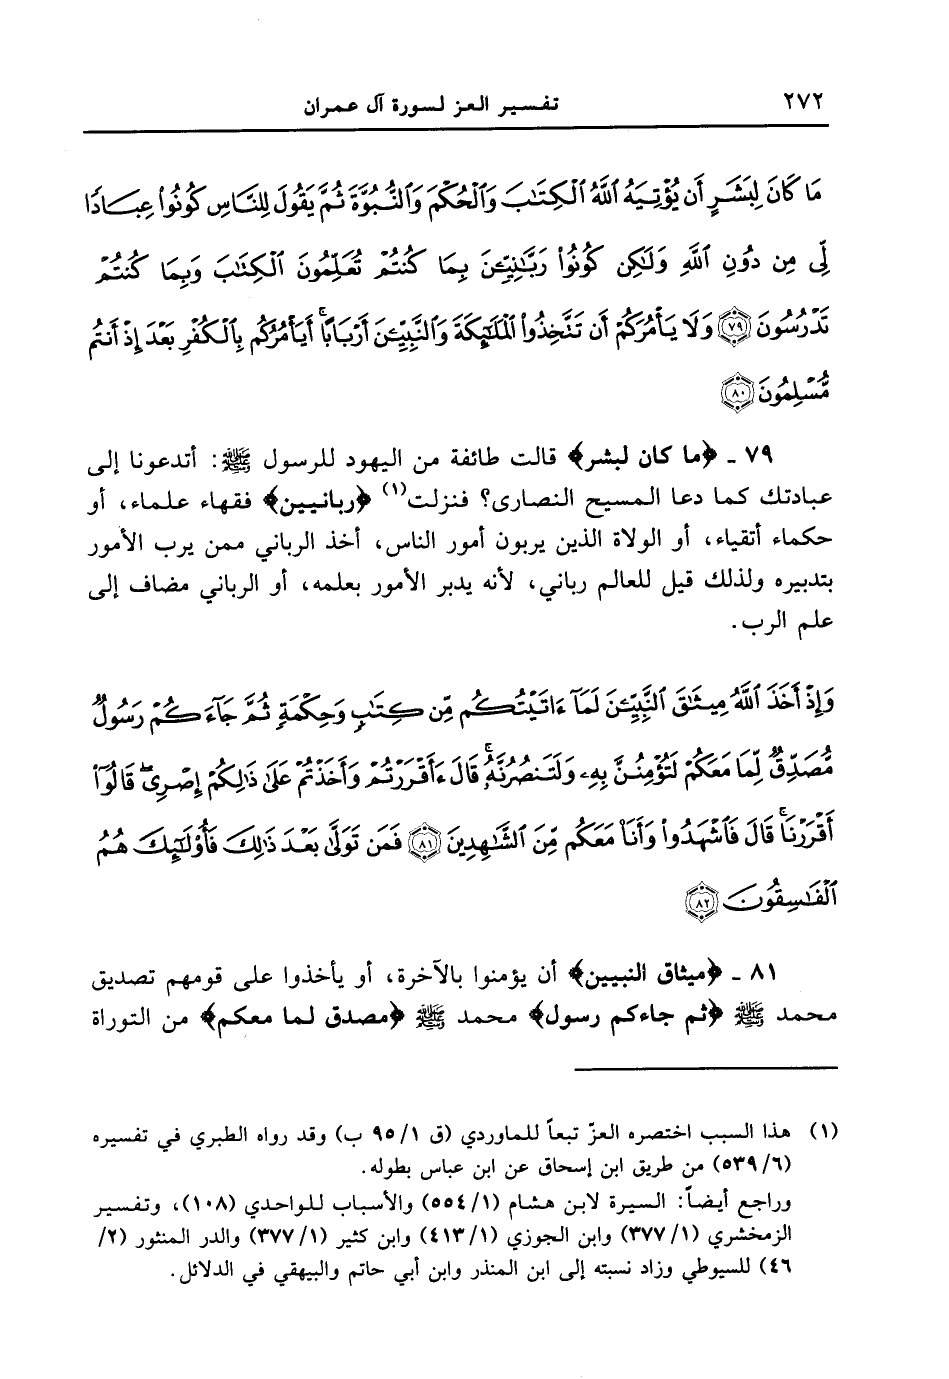 ٢٧٢ تفسير العز لسورة آل عمران
مَا كَانَ لِبَشَرٍ أَن يُؤْتِيَهُ ٱللَّهُ ٱلْكِتَٰبَ وَٱلْحُكْمَ وَٱلنُّبُوَّةَ ثُمَّ يَقُولَ لِلنَّاسِ كُونُوا۟ عِبَادًا
لِّى مِن دُونِ ٱللَّهِ وَلَٰكِن كُونُوا۟ رَبَّٰنِيِّۦنَ بِمَا كُنتُمْ تُعَلِّمُونَ ٱلْكِتَٰبَ وَبِمَا كُنتُمْ
تَدْرُسُونَ ﴿٧٩﴾ وَلَا يَأْمُرَكُمْ أَن تَتَّخِذُوا۟ ٱلْمَلَٰٓئِكَةَ وَٱلنَّبِيِّۦنَ أَرْبَابًا ۗ أَيَأْمُرُكُم بِٱلْكُفْرِ بَعْدَ إِذْ أَنتُم
مُّسْلِمُونَ ﴿٨٠﴾
٧٩ ـ ﴿ما كان لبشر﴾ قالت طائفة من اليهود للرسول ﷺ: أتدعونا إلى
عبادتك كما دعا المسيح النصارى؟ فنزلت(١) ﴿ربانيين﴾ فقهاء علماء، أو
حكماء أتقياء، أو الولاة الذين يربون أمور الناس، أخذ الرباني ممن يرب الأمور
بتدبيره ولذلك قيل للعالم رباني، لأنه يدبر الأمور بعلمه، أو الرباني مضاف إلى
علم الرب.
وَإِذْ أَخَذَ ٱللَّهُ مِيثَٰقَ ٱلنَّبِيِّۦنَ لَمَآ ءَاتَيْتُكُم مِّن كِتَٰبٍ وَحِكْمَةٍ ثُمَّ جَآءَكُمْ رَسُولٌ
مُّصَدِّقٌ لِّمَا مَعَكُمْ لَتُؤْمِنُنَّ بِهِۦ وَلَتَنصُرُنَّهُۥ ۚ قَالَ ءَأَقْرَرْتُمْ وَأَخَذْتُمْ عَلَىٰ ذَٰلِكُمْ إِصْرِى ۖ قَالُوٓا۟
أَقْرَرْنَا ۚ قَالَ فَٱشْهَدُوا۟ وَأَنَا۠ مَعَكُم مِّنَ ٱلشَّٰهِدِينَ ﴿٨١﴾ فَمَن تَوَلَّىٰ بَعْدَ ذَٰلِكَ فَأُو۟لَٰٓئِكَ هُمُ
ٱلْفَٰسِقُونَ ﴿٨٢﴾
٨١ ـ ﴿ميثاق النبيين﴾ أن يؤمنوا بالآخرة، أو يأخذوا على قومهم تصديق
محمد ﷺ ﴿ثم جاءكم رسول﴾ محمد ﷺ ﴿مصدق لما معكم﴾ من التوراة
(١) هذا السبب اختصره العزّ تبعاً للماوردي (ق ١/ ٩٥ ب) وقد رواه الطبري في تفسيره
(٦/ ٥٣٩) من طريق ابن إسحاق عن ابن عباس بطوله.
وراجع أيضاً: السيرة لابن هشام (١/ ٥٥٤) والأسباب للواحدي (١٠٨)، وتفسير
الزمخشري (١/ ٣٧٧) وابن الجوزي (١/ ٤١٣) وابن كثير (١/ ٣٧٧) والدر المنثور (٢/
٤٦) للسيوطي وزاد نسبته إلى ابن المنذر وابن أبي حاتم والبيهقي في الدلائل.